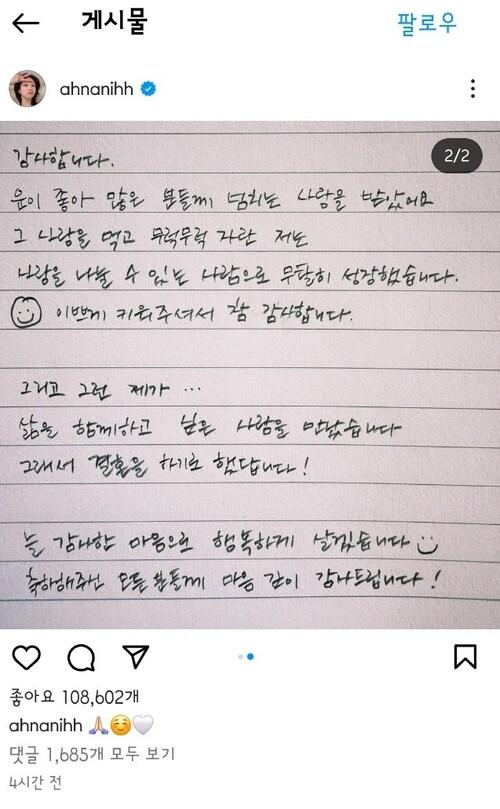 게시물
팔로우
ahnanihh
2/2
감사합니다.
운이 좋아 많은 분들께 넘치는 사랑을 받았어요
그 사랑을 먹고 무럭무럭 자란 저는
사랑을 나눌 수 있는 사람으로 무탈히 성장했습니다.
이쁘게 키워주셔서 참 감사합니다.
그리고 그런 제가 ...
삶을 함께하고 싶은 사람을 만났습니다
그래서 결혼을 하기로 했답니다!
늘 감사한 마음으로 행복하게 살겠습니다
축하해주신 모든 분들께 마음 깊이 감사드립니다!
좋아요 108,602개
ahnanihh 🙏🏻☺️🤍
댓글 1,685개 모두 보기
4시간 전